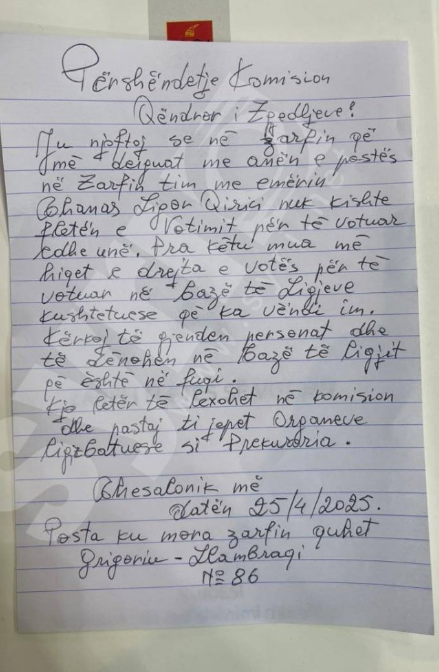 Përshëndetje Komision
Qëndror i Zgjedhjeve!
Ju njoftoj se në zarfin që
më dërguat me anën e postës
në Zarfin tim me emërin
Thanas Ligor Qirici nuk kishte
fletën e Votimit për të votuar
edhe unë. Pra këtu mua më
hiqet e drejta e votës për të
votuar në bazë të Ligjeve
kushtetuese që ka vëndi im.
Kërkoj të gjenden personat dhe
të dënohen në bazë të ligjit
që është në fuqi.
Kjo letër të lexohet në komision
dhe pastaj ti jepet Organeve
ligjzbatuese si Prokuroria.
Thesalonik më
datën 25/4/2025.
Posta ku mora zarfin quhet
Grigoriu - Llambraqi
№ 86